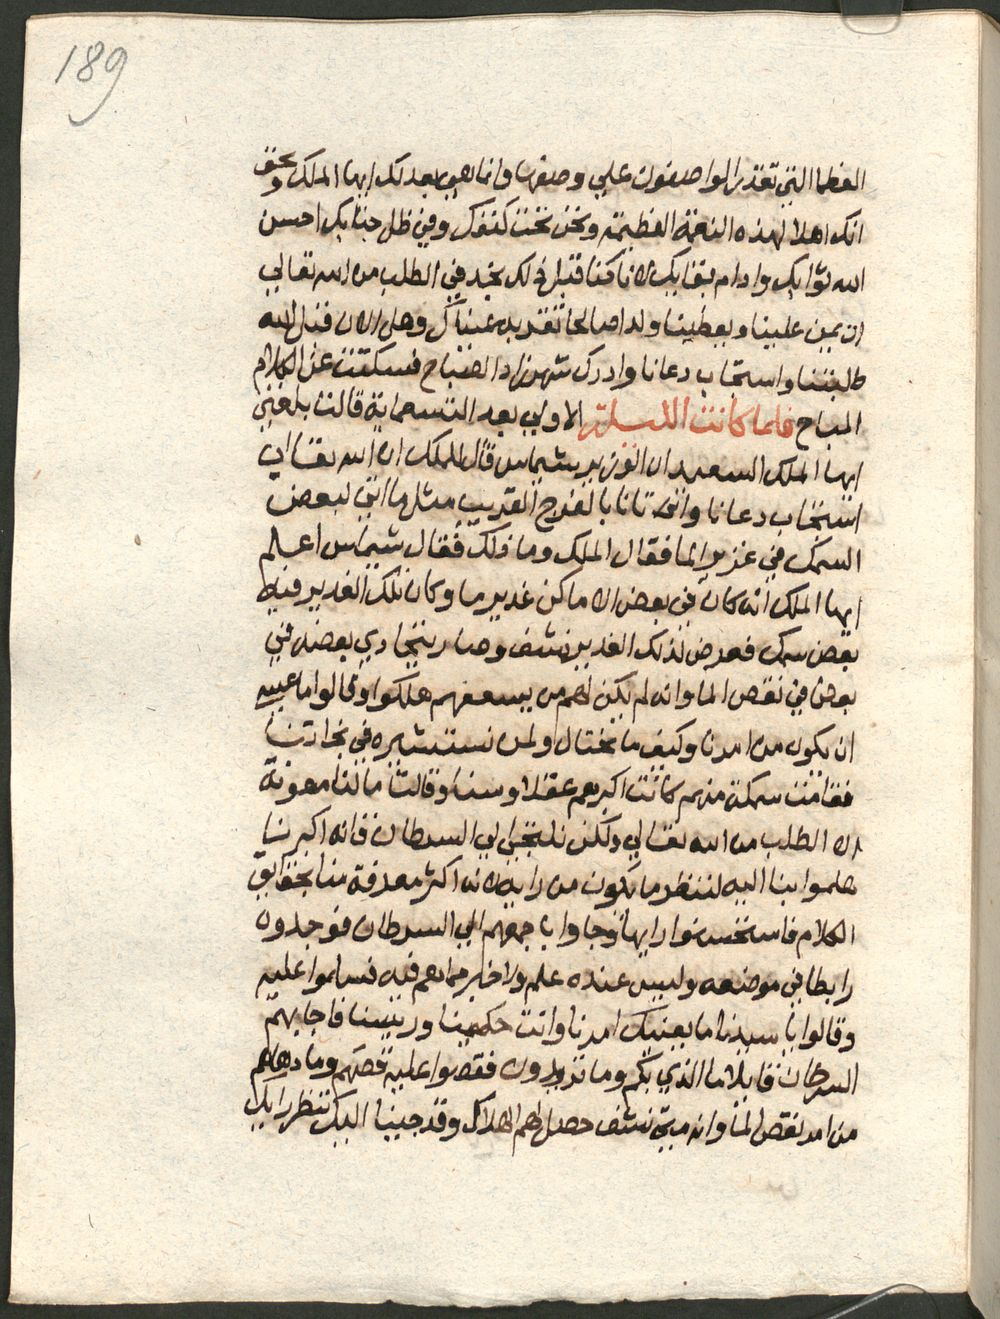 189
العظما التي تقدر الواصفون علي وصفها وانما هي بعدلك ايها الملك وبحق
انك اهلا لهذه النعمة العظيمة ونحن تحت كنفك وفي ظل جنابك احسن
الله ثوابك وادام بقايك لانا كنا قبل ذلك نجد في الطلب من الله تعالي
ان يمن علينا ويعطينا ولدا صالحا تقر به عيناك وهل الان قبل الله
طلبتنا واستجاب دعانا وادرك شهرزاد الصباح فسكتت عن الكلام
المباح فلما كانت الليلة الاولي بعد التسعماية قالت بلغني
ايها الملك السعيد ان الوزير شيماس قال للملك ان الله تعالي
استجاب دعانا واتانا بالفرج القريب مثل ما اتي لبعض
السمك في غدير الما فقال الملك وما ذلك فقال شيماس اعلم
ايها الملك انه كان في بعض الاماكن غدير ما وكان تلك الغدير فيه
بعض سمك فعرض لذلك الغدير نشف وصار يتجادي بعضه في
بعض في نقص الما وانه لم يكن لهم من يسعفهم هلكوا وقالوا ما عسي
ان يكون من امرنا وكيف ما نحتال ولمن نستشيره في نجاتنا
فقامت سمكة منهم كانت اكبرهم عقلا وسنا وقالت ما لنا معونة
الا الطلب من الله تعالي ولكن نلتجي الي السرطان فانه اكبرنا
هلموا بنا اليه لننظر ما يكون من رايه لانه اكثر معرفة منا بحقايق
الكلام فاستحسنوا رايها وجاوا باجمعهم الي السرطان فوجدوه
رابطا في موضعه وليس عنده علم ولا خبر مما هم فيه فسلموا عليه
وقالوا يا سيدنا ما يعنيك امرنا وانت حكيمنا ورييسنا فاجابهم
السرطان قايلا ما الذي بكم وما تريدون فقصوا عليه قصتهم وما دهاهم
من امر نقص الما وانه متي نشف حصل لهم الهلاك وقد جينا اليك ننظر رايك